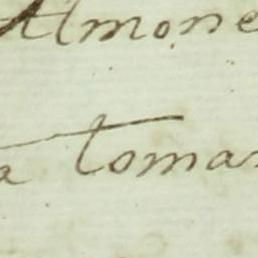 Almone
a tomar